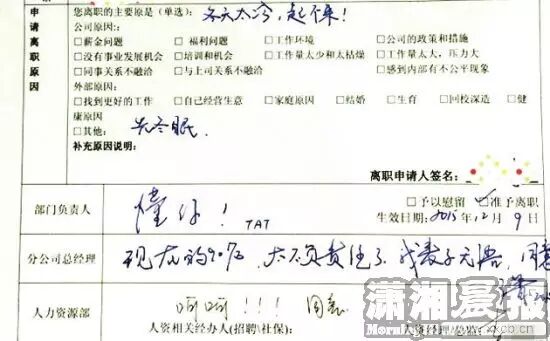 申请离职原因
您离职的主要原是(单选): 冬天太冷,起不来!
公司原因:
□薪金问题 □福利问题 □工作环境 □公司的政策和措施
□没有事业发展机会 □培训和机会 □工作量太少和太枯燥 □工作量太大,压力大
□同事关系不融洽 □与上司关系不融洽 □感到内部有不公平现象
外部原因:
□找到更好的工作 □自己经营生意 □家庭原因 □结婚 □生育 □回校深造 □健
康原因
□其他: 去冬眠.
补充原因说明:
离职申请人签名:
部门负责人
懂你! TAT
□予以慰留 □准予离职
生效日期: 2015年12月9日
分公司总经理
现在的90后,太不负责任了,我表示无语,同意
人力资源部
呵呵!!! 同意
人资相关经办人(招聘\社保):
人资经理/总监:
潇湘晨报